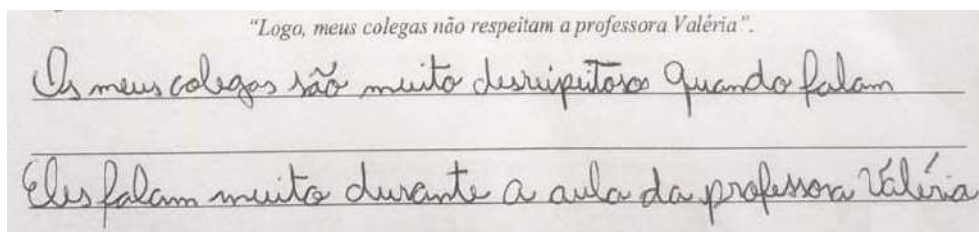 “Logo, meus colegas não respeitam a professora Valéria”.
Os meus colegas são muito desreipeitosos quando falam
Eles falam muito durante a aula da professora Valéria